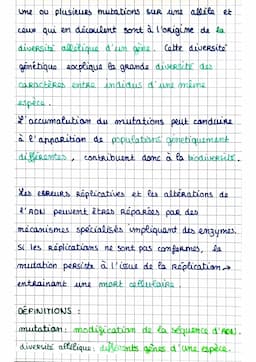 une ou plusieurs mutations sur une allèle et
ceux qui en découlent sont à l'origine de la
diversité allélique d'un gène. Cette diversité
génétique explique la grande diversité des
caractères entre individus d'une même
espèce.
L'accumulation du mutations peut conduire
à l'apparition de populations génétiquement
différentes, contribuent donc à la biodiversité.
Les erreurs réplicatives et les altérations de
l'ADN peuvent êtres réparées par des
mécanismes spécialisés impliquant des enzymes.
Si les réplications ne sont pas conformes, la
mutation persiste à l'issue de la réplication →
entrainant une mort cellulaire.
DÉFINITIONS :
mutation: modification de la séquence d'ADN.
diversité allélique: différents gènes d'une espèce.